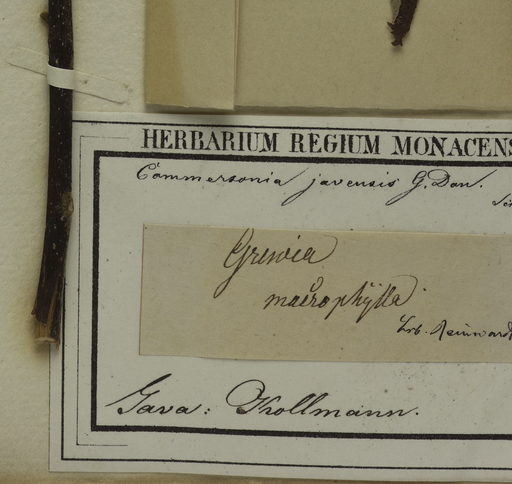 HERBARIUM REGIUM MONACENS
Commersonia javensis G. Don.
Grewia
macrophylla
hrb. Reinwardt
Java: Kollmann.